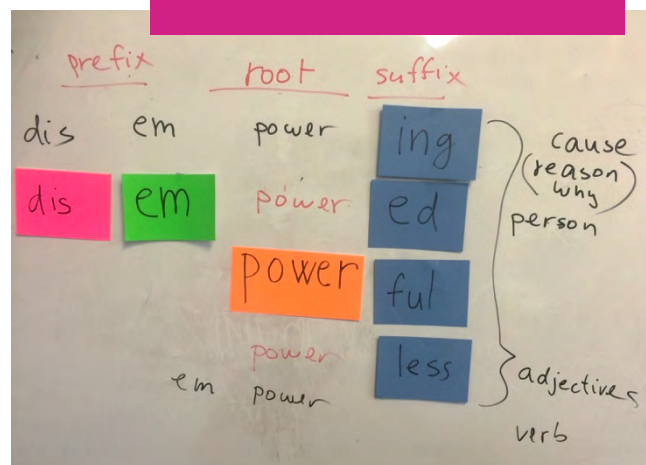 prefix root suffix
dis em power ing
dis em power ed
power ful
power less
em power
cause
(reason
why)
person
adjectives
verb